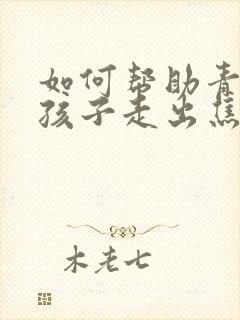 如何帮助青
孩子走出焦
木老七